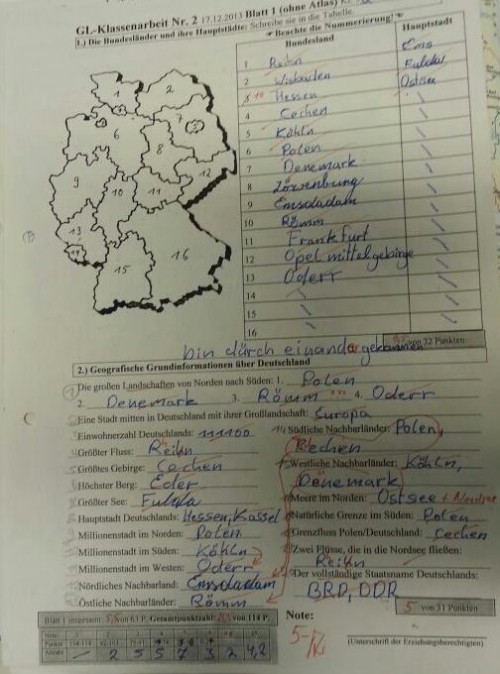 GL-Klassenarbeit Nr. 2 17.12.2013 Blatt 1 (ohne Atlas)
1.) Die Bundesländer und ihre Hauptstädte: Schreibe sie in die Tabelle.
Beachte die Nummerierung!
Bundesland Hauptstadt
1 Reihn Ems
2 Wisbaden Fulda
3 10 Hessen Ostsee
4 Cechen
5 Köhln
6 Polen
7 Denemark
8
9 Emsdadam
10 Römm
11 Frankfurt
12 Opel mittelgebirge
13 Oderr
14
15
16
1
2
7
5
6
8
9
10
11
12
13
14
15
16
bin dürch einander gekommen
von 32 Punkten
2.) Geografische Grundinformationen über Deutschland
Die großen Landschaften von Norden nach Süden: 1. Polen
2. Denemark 3. Römm 4. Oderr
Eine Stadt mitten in Deutschland mit ihrer Großlandschaft: Europa
Einwohnerzahl Deutschlands: 111100
Südliche Nachbarländer: Polen,
Größter Fluss: Reihn
Cechen
Größtes Gebirge: Cechen
Westliche Nachbarländer: Köhln,
Höchster Berg: Eder
Dänemark
Größter See: Fulda
Meere im Norden: Ostsee
Hauptstadt Deutschlands: Hessen, Kassel
Natürliche Grenze im Süden: Polen
Millionenstadt im Norden: Polen
Grenzfluss Polen/Deutschland: Cechen
Millionenstadt im Süden: Köhln
Zwei Flüsse, die in die Nordsee fließen:
Millionenstadt im Westen: Oderr
Reihn
Nördliches Nachbarland: Emsdadam
Der vollständige Staatsname Deutschlands:
Östliche Nachbarländer: Römm
BRD, DDR
5 von 31 Punkten
Blatt 1 insgesamt: von 63 P. Gesamtpunktzahl: von 114 P.
Note:
5-
2 5 5 7 3 2 4,2
(Unterschrift der Erziehungsberechtigten)